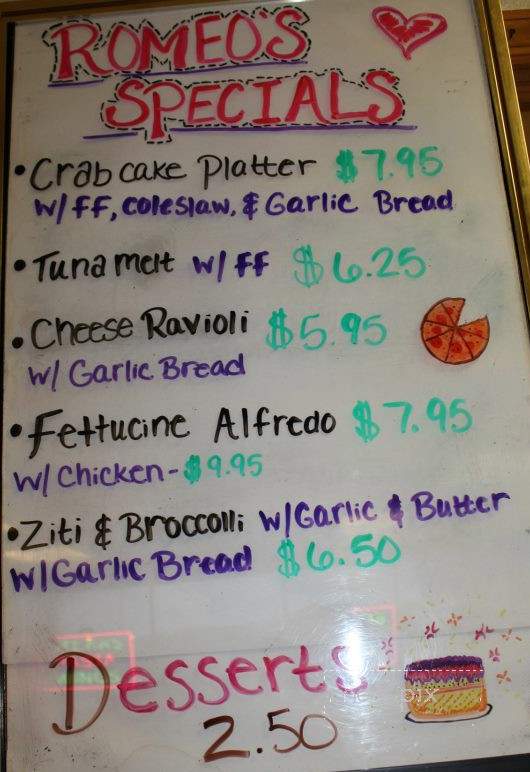 ROMEO'S
SPECIALS
• Crab cake Platter $7.95
w/ff, coleslaw, & Garlic Bread
• Tuna melt w/ff $6.25
• Cheese Ravioli $5.95
w/ Garlic Bread
• Fettucine Alfredo $7.95
w/ Chicken - $9.95
• Ziti & Broccolli w/Garlic & Butter
w/Garlic Bread $6.50
Desserts
2.50